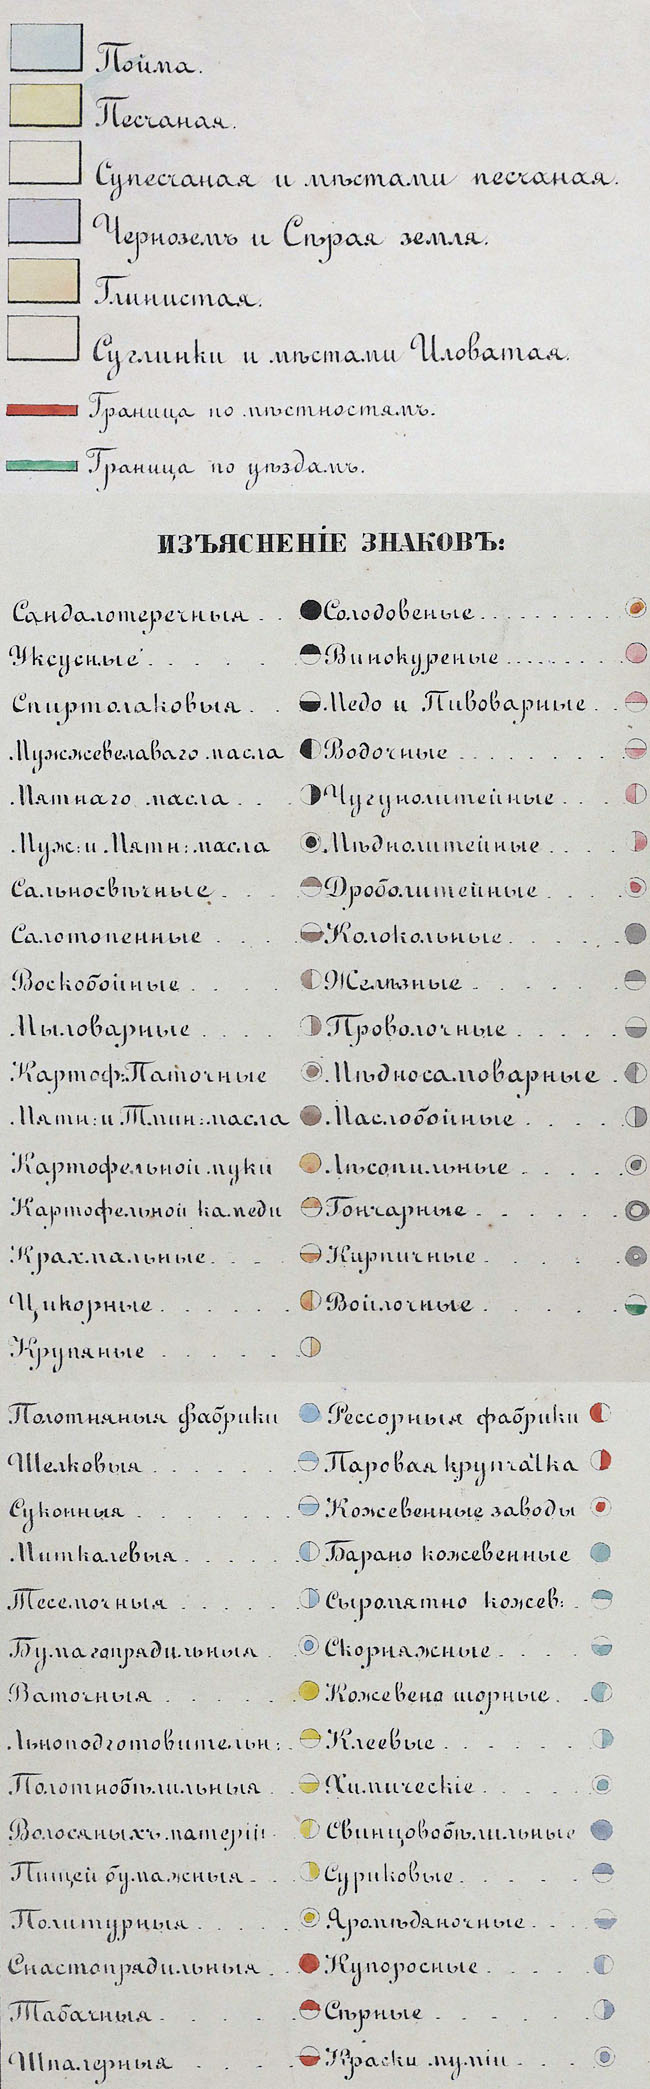 Пойма.
Песчаная.
Супесчаная и мѣстами песчаная.
Черноземъ и Сѣрая земля.
Глинистая.
Суглинки и мѣстами Иловатая.
Граница по мѣстностямъ.
Граница по уѣздамъ.
ИЗЪЯСНЕНІЕ ЗНАКОВЪ:
Сандалотеречныя . . Солодовеные . . . . . . . . .
Уксусные . . . . Винокуреные . . . . . . .
Спиртолаковыя . . Медо и Пивоварные . .
Мужжевелаваго масла Водочные . . . . . . . .
Мятнаго масла . . . Чугунолитейные . . .
Муж: и Мятн: масла Мѣднолитейные . . . .
Сальносвѣчные . . . Дроболитейные . . . .
Салотопенные . . . . Колокольные . . . . .
Воскобойные . . . . Желѣзные . . . . . .
Мыловарные . . . . Проволочные . . . . .
Картоф: Паточные Мѣдносамоварные .
Мятн: и Тмин: масла Маслобойные . . . . .
Картофельной муки Лѣсопильные . . . . .
Картофельной камеди Гончарные . . . . . .
Крахмальные . . . . Кирпичные . . . . .
Цикорные . . . . . . Войлочные . . . . .
Крупяные . . . . . .
Полотняныя фабрики Рессорныя фабрики
Шелковыя . . . . . . Паровая крупчатка
Суконныя . . . . . . Кожевенные заводы
Миткалевыя . . . . . Барано кожевенные
Тесемочныя . . . . . Сыромятно кожев: .
Бумагопрядильныя . . Скорняжные . . . .
Ваточныя . . . . . . Кожевено шорные . .
Льноподготовительн: . Клеевые . . . . . .
Полотнобѣлильныя . . Химическіе . . . . .
Волосяныхъ матерій . Свинцовобѣлильные
Пищей бумажныя . . Суриковые . . . . .
Политурныя . . . . . Яромѣдяночные . . .
Снастопрядильныя . . Купоросные . . . . .
Табачныя . . . . . . Сѣрные . . . . . .
Шпалерныя . . . . . Краски муміи . . . .